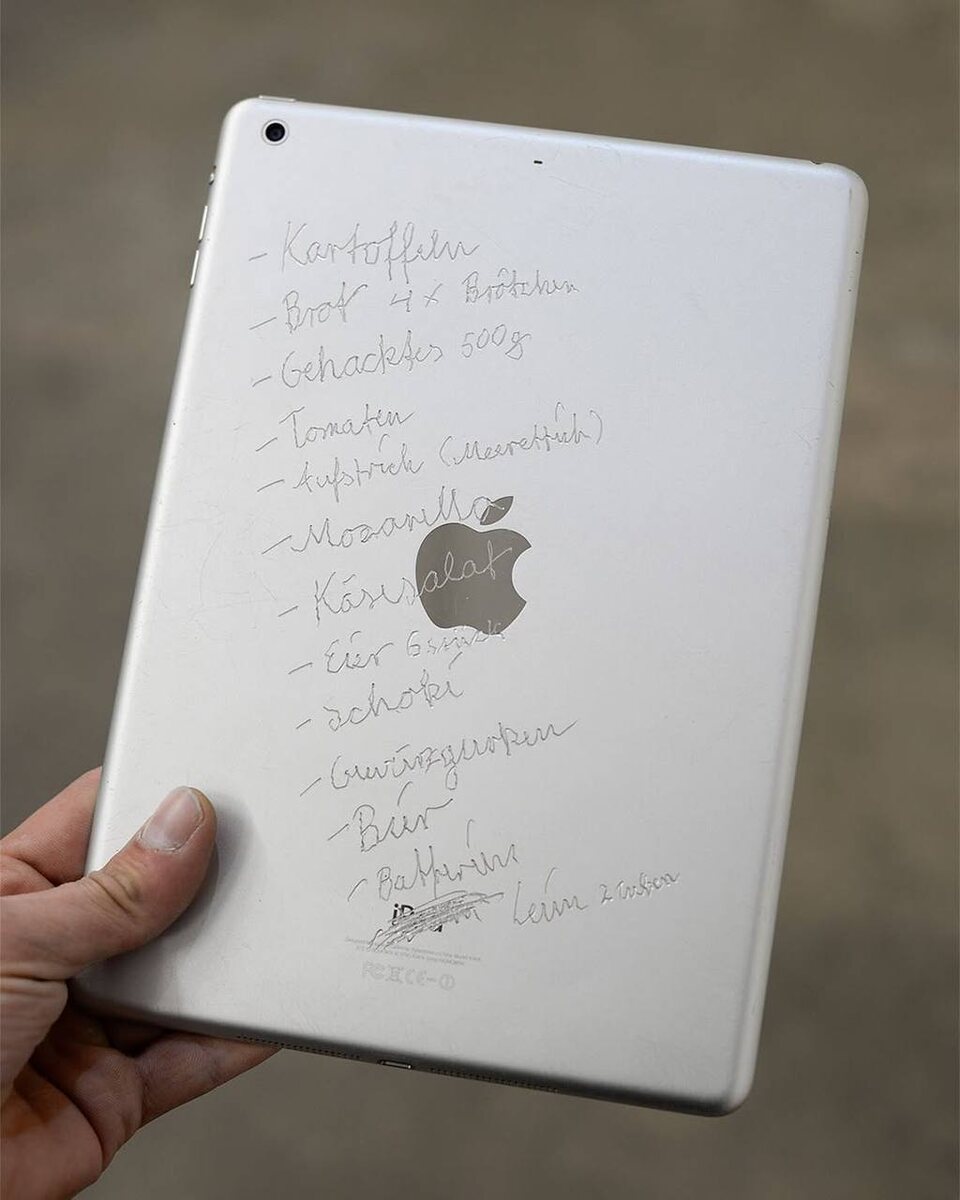 - Kartoffeln
- Brot 4 x Brötchen
- Gehacktes 500g
- Tomaten
- Aufstrich (Meerettich)
- Mozarella
- Käsesalat
- Eier 6 stück
- Schoki
- Gewürzgurken
- Bier
- Batterien
Leim 2 Tuben
FC CE